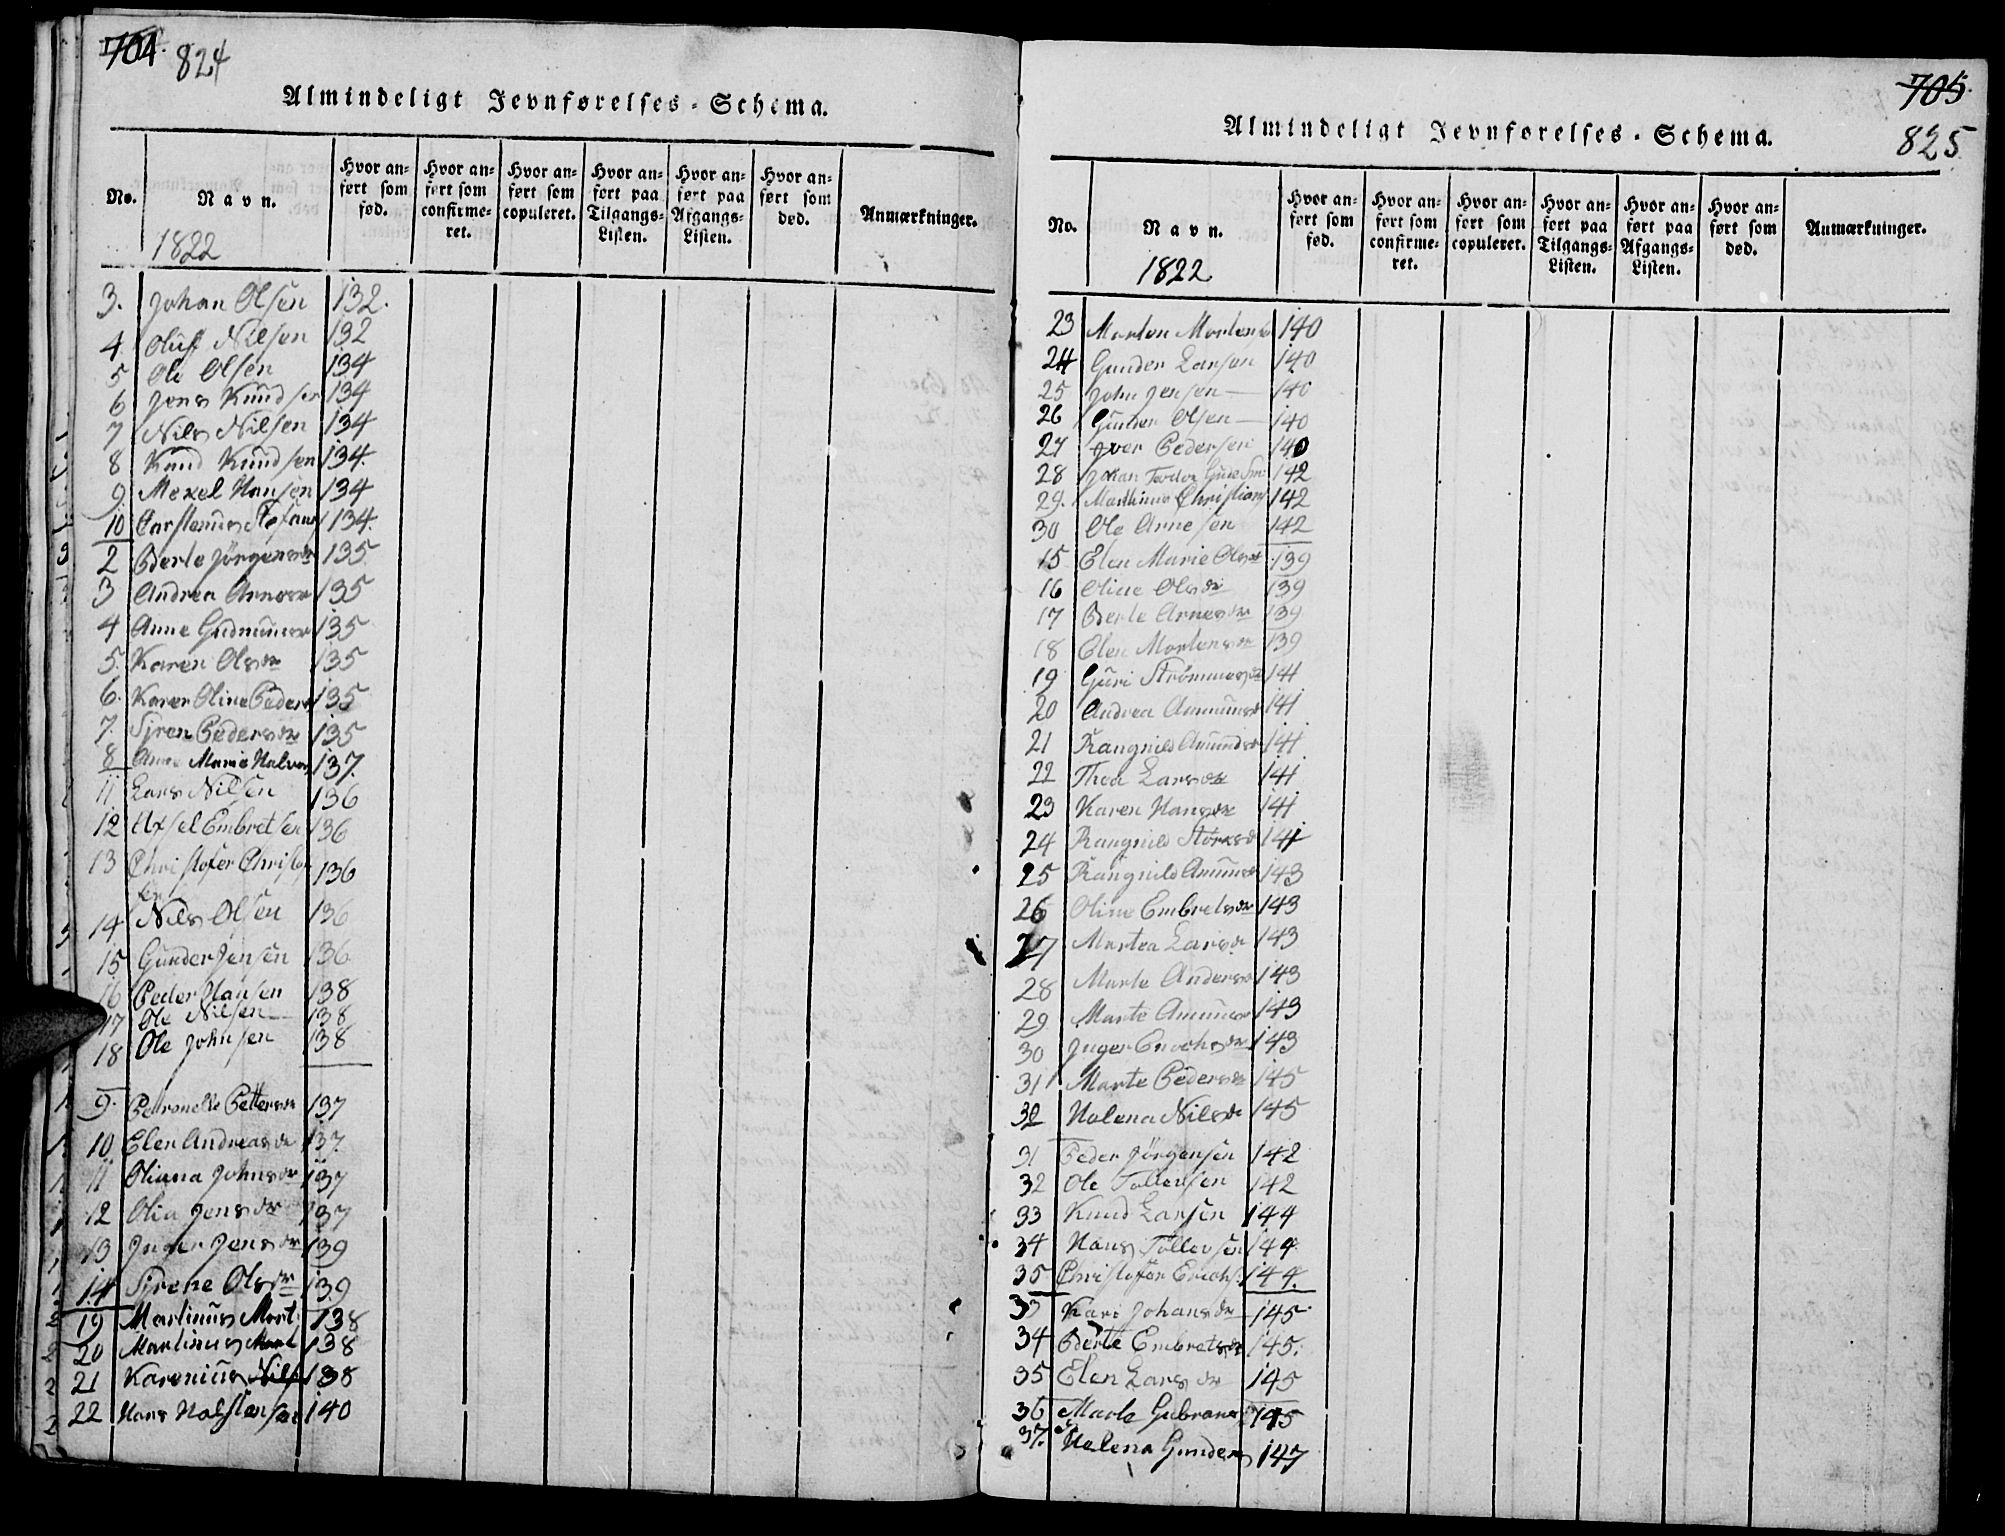 704. 824
Almindeligt Jevnførelses-Schema.
No. Navn. Hvor anført som fød. Hvor anført som confirmeret. Hvor anført som copuleret. Hvor anført paa Tilgangs-Listen. Hvor anført paa Afgangs-Listen. Hvor anført som død. Anmærkninger.
1822
3. Johan Olsen 132.
4 Oluf Nilsen 132
5 Ole Olsen 134
6 Jens Knudsen 134
7 Nils Nilsen 134
8 Knud Knudsen 134.
9 Mexel Hansen 134
10 134.
2 Berte Jörgensdr 135
3 Andrea Arnesdr 135
4 Anne 135
5. Karen Olsdr 135
6. Karen Oline Peders 135
7. Siren Pedersdr 135
8 Anne Marie Halvor 137.
11 Lars Nilsen 136
12 Axsel Embretsen 136
13 Christofer Christof
fer 136
14 Nils Olsen 136
15 Gunder Jensen 136
16 Peder Hansen 138
17 Ole Nilsen 138
18 Ole Johnsen 138
9. Petronelle Pettersdr 137
10 Elen Andreasdr 137.
11 Oliana Johnsdr 137
12 Olia Jensdr 137
13 Inger Jensdr 139
14 Sirene Olsdr 139
19 Martinus Mort 138
20 Martinus Mort 138
21 Karenius Nils 138
22 Hans Halstensen 140
705
825
Almindeligt Jevnførelses-Schema.
No. Navn. Hvor anført som fød. Hvor anført som confirmeret. Hvor anført som copuleret. Hvor anført paa Tilgangs-Listen. Hvor anført paa Afgangs-Listen. Hvor anført som død. Anmærkninger.
1822
23 Morten Mortens 140
24 Gunder Larsen 140
25 John Jensen 140
26 Gunder Olsen 140
27 Iver Pedersen 140
28 Johan 142
29. Martinus Christians 142
30 Ole Arnesen 142
15 Elen Marie Olsdr 139
16 Oline Olsdr 139
17 Berte Arnesdr 139
18 Elen Mortensdr 139
19 Guri Strömmesdr 141
20 Andrea Amunsdr 141
21 Rangnild Amundsdr 141
22 Thea Larsdr 141
23 Karen Hansdr 141
24 Rangnild 141
25 Rangnild Amunsdr 143
26 Oline Embretsdr 143
27 Martea Larsdr 143
28 Marte Andersdr 143
29 Marte Amunsdr 143
30 Inger Enochsdr 143
31 Marte Pedersdr 145
32 Halena Nilsdr 145
31 Peder Jörgensen 142
32 Ole Tollefsen 142
33 Knud Larsen 144
34 Hans Tollevsen 144
35 Christofer Erichs. 144.
33 Kari Johansdr 145.
34 Berte Embretsdr 145.
35 Elen Larsdr 145
36 Marte Gubrans 145
37. Helena Gunders 147